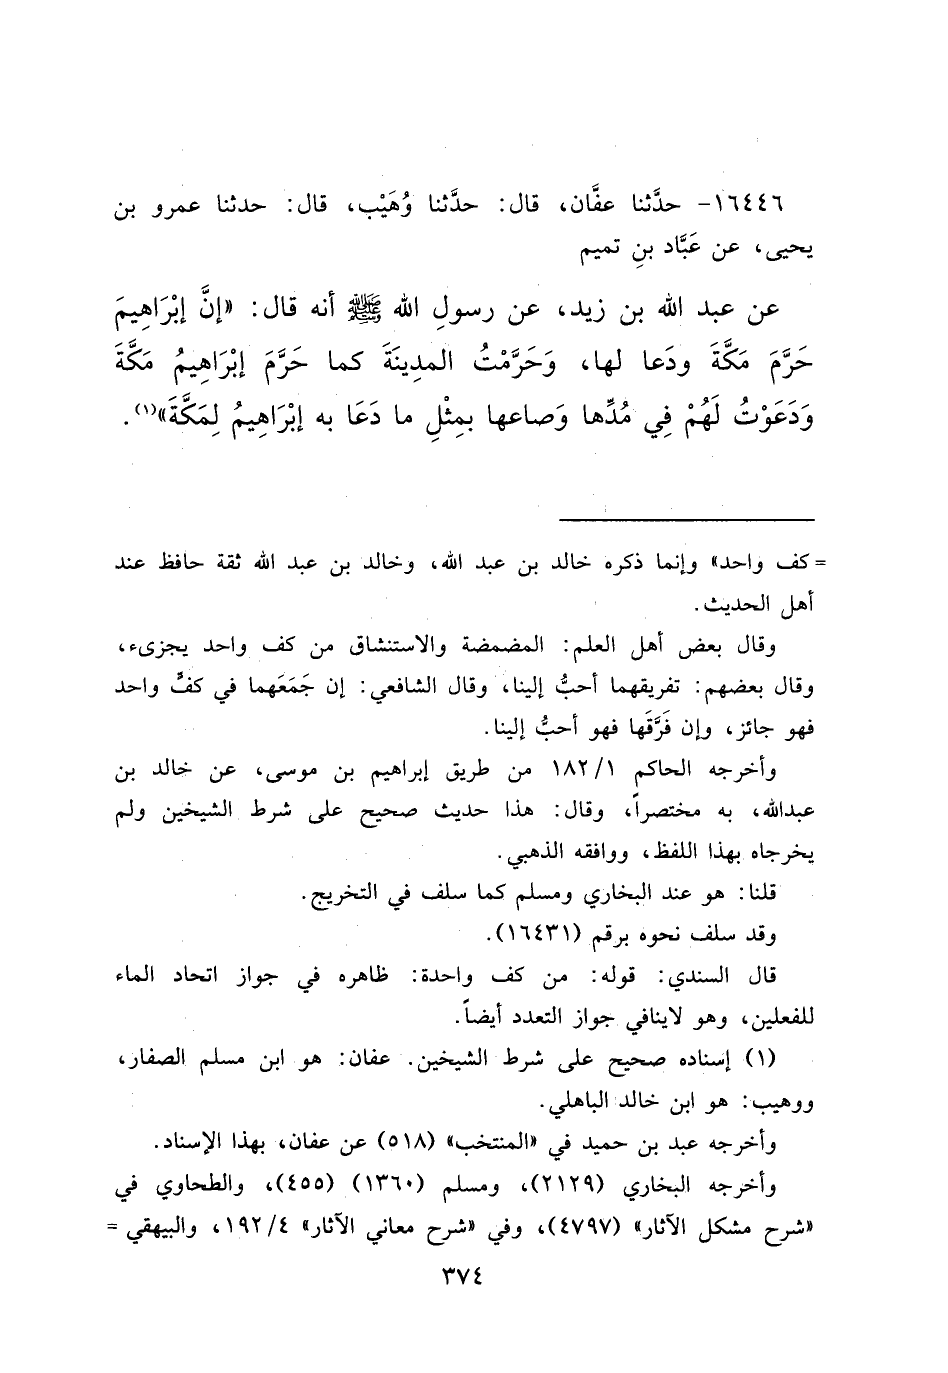 ١٦٤٤٦- حدَّثنا عفَّان، قال: حدَّثنا وُهَيْب، قال: حدثنا عمرو بن
يحيى، عن عَبَّاد بنِ تميم
عن عبد الله بن زيد، عن رسولِ الله ﷺ أنه قال: «إنَّ إبْرَاهِيمَ
حَرَّمَ مَكَّةَ ودَعا لها، وَحَرَّمْتُ المدِينَةَ كما حَرَّمَ إبْرَاهِيمُ مَكَّةَ
وَدَعَوْتُ لَهُمْ فِي مُدِّها وَصاعها بمِثْلِ ما دَعَا به إبْرَاهِيمُ لِمَكَّةَ»(١).
= كف واحد» وإنما ذكره خالد بن عبد الله، وخالد بن عبد الله ثقة حافظ عند
أهل الحديث.
وقال بعض أهل العلم: المضمضة والاستنشاق من كف واحد يجزىء،
وقال بعضهم: تفريقهما أحبُّ إلينا، وقال الشافعي: إن جَمَعَهما في كفٍّ واحد
فهو جائز، وإن فَرَّقَها فهو أحبُّ إلينا.
وأخرجه الحاكم ١٨٢/١ من طريق إبراهيم بن موسى، عن خالد بن
عبدالله، به مختصراً، وقال: هذا حديث صحيح على شرط الشيخين ولم
يخرجاه بهذا اللفظ، ووافقه الذهبي.
قلنا: هو عند البخاري ومسلم كما سلف في التخريج.
وقد سلف نحوه برقم (١٦٤٣١).
قال السندي: قوله: من كف واحدة: ظاهره في جواز اتحاد الماء
للفعلين، وهو لاينافي جواز التعدد أيضاً.
(١) إسناده صحيح على شرط الشيخين. عفان: هو ابن مسلم الصفار،
ووهيب: هو ابن خالد الباهلي.
وأخرجه عبد بن حميد في «المنتخب» (٥١٨) عن عفان، بهذا الإسناد.
وأخرجه البخاري (٢١٢٩)، ومسلم (١٣٦٠) (٤٥٥)، والطحاوي في
«شرح مشكل الآثار» (٤٧٩٧)، وفي «شرح معاني الآثار» ١٩٢/٤، والبيهقي =
٣٧٤